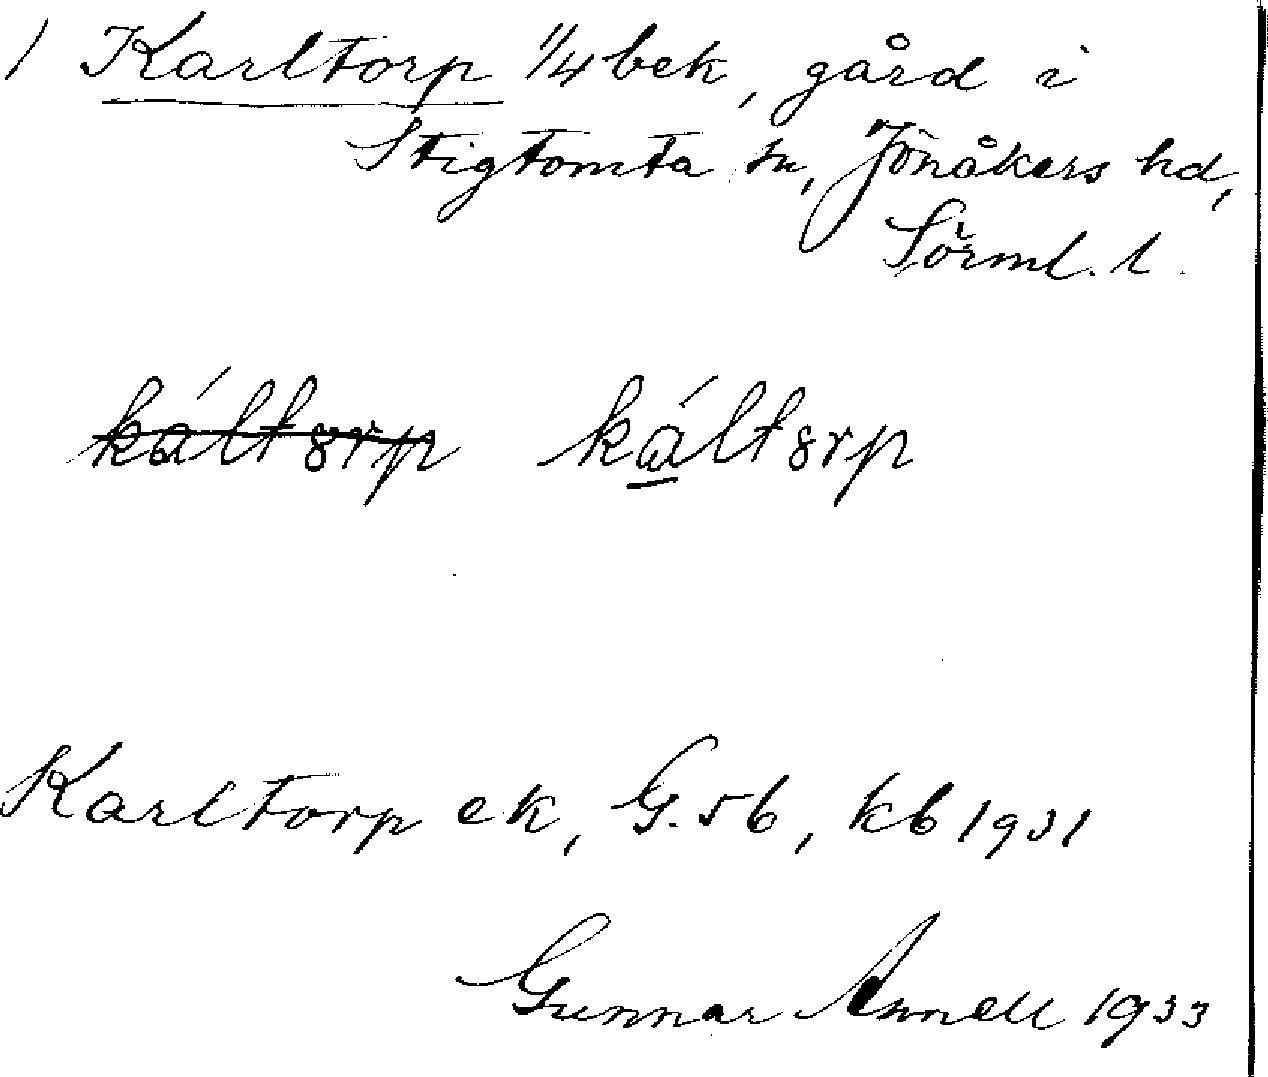 1 Karltorp 1/4 bek, gård i
Stigtomta sn, Jönåkers hd,
Sörml. l.
káltsrp káltsrp
Karltorp ek, G. 5b, kb 1931
Gunnar Annell 1933